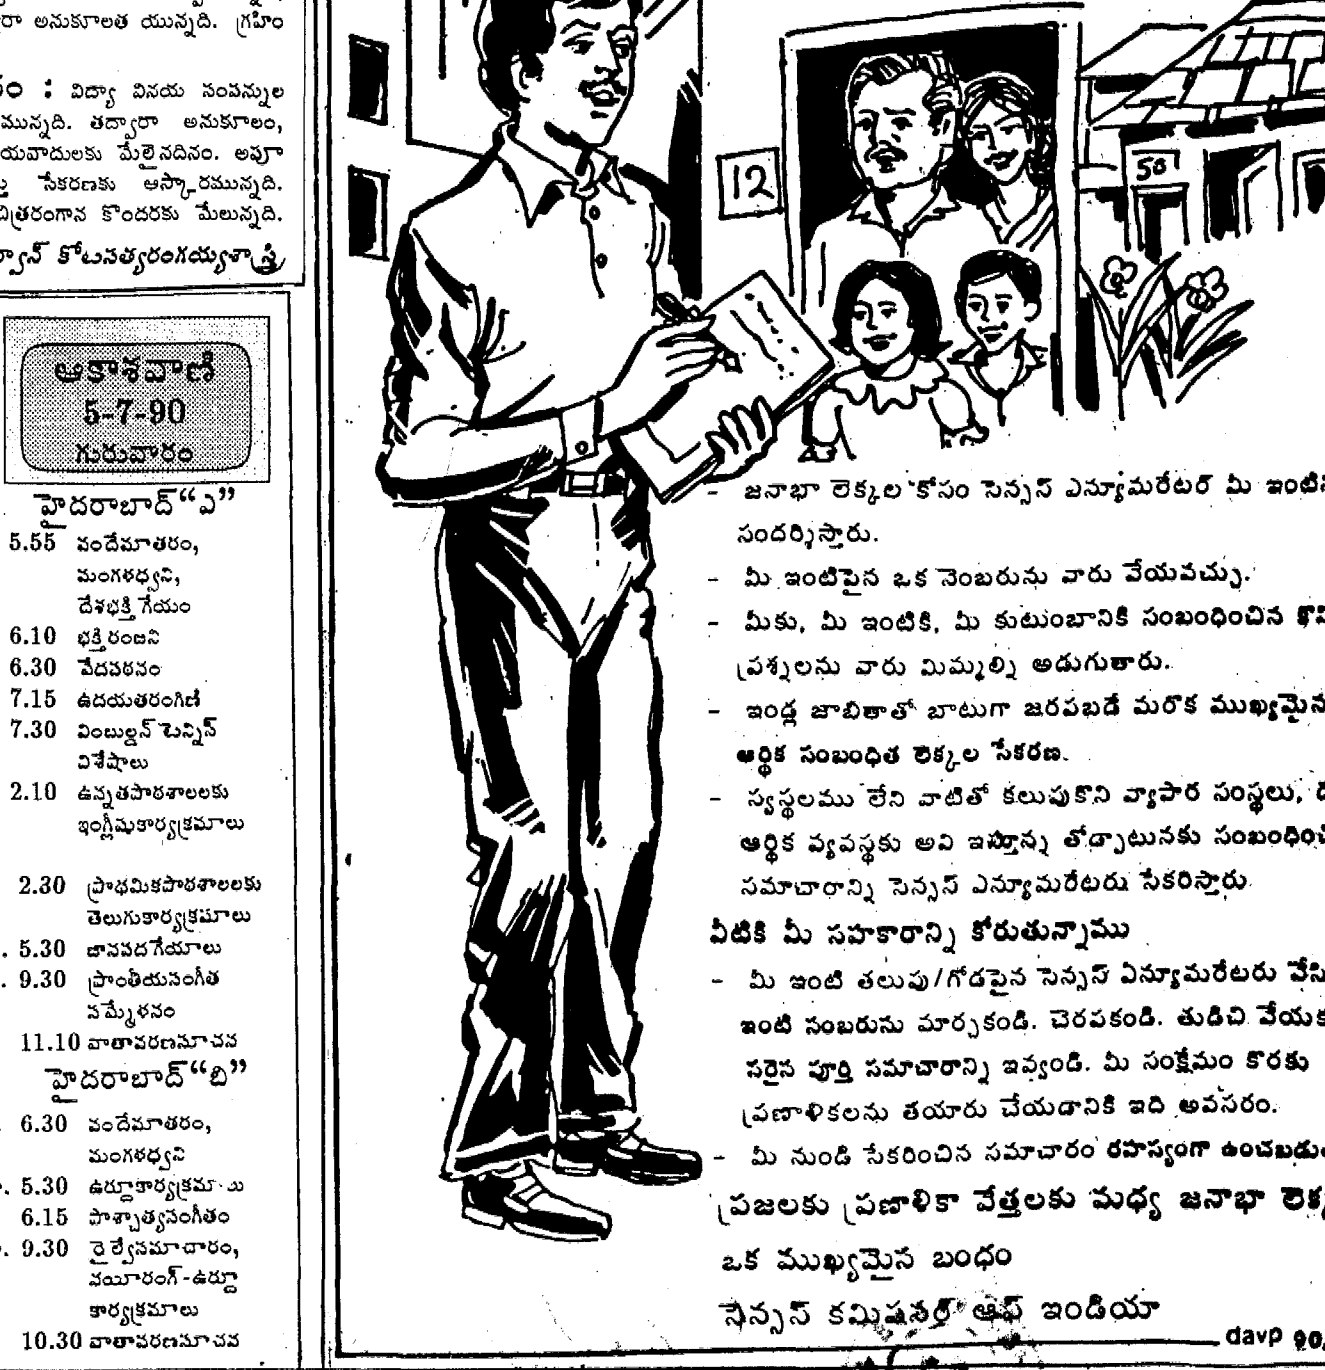 అనుకూలత యున్నది. గ్రహిం
విద్యా వినయ సంపన్నుల
మున్నది. తద్వారా అనుకూలం,
యవాదులకు మేలైనదినం. అపూ
సేకరణకు ఆస్కారమున్నది.
చిత్రతరంగాన కొందరకు మేలున్నది.
కోటసత్యరంగయ్యశాస్త్రి
ఆకాశవాణి
5-7-90
గురువారం
హైదరాబాద్ “ఎ”
5.55 వందేమాతరం,
మంగళధ్వని,
దేశభక్తి గేయం
6.10 భక్తిరంజని
6.30 వేదపఠనం
7.15 ఉదయతరంగిణి
7.30 వింబుల్డన్ టెన్నిస్
విశేషాలు
2.10 ఉన్నతపాఠశాలలకు
ఇంగ్లీషుకార్యక్రమాలు
2.30 ప్రాథమికపాఠశాలలకు
తెలుగుకార్యక్రమాలు
5.30 జానపదగేయాలు
9.30 ప్రాంతీయసంగీత
సమ్మేళనం
11.10 వాతావరణసూచన
హైదరాబాద్ “బి”
6.30 వందేమాతరం,
మంగళధ్వని
5.30 ఉర్దూకార్యక్రమాలు
6.15 పాశ్చాత్యసంగీతం
9.30 రైల్వేసమాచారం,
నయీరంగ్-ఉర్దూ
కార్యక్రమాలు
10.30 వాతావరణసూచన
12
50
- జనాభా లెక్కల కోసం సెన్సస్ ఎన్యూమరేటర్ మీ
సందర్శిస్తారు.
- మీ ఇంటిపైన ఒక నెంబరును వారు వేయవచ్చు.
- మీకు, మీ ఇంటికి, మీ కుటుంబానికి సంబంధించిన
ప్రశ్నలను వారు మిమ్మల్ని అడుగుతారు.
- ఇండ్ల జాబితాతో బాటుగా జరపబడే మరొక ముఖ్యమైన
ఆర్థిక సంబంధిత లెక్కల సేకరణ.
- స్వస్థలము లేని వాటితో కలుపుకొని వ్యాపార సంస్థలు,
ఆర్థిక వ్యవస్థకు అవి ఇస్తూన్న తోడ్పాటునకు
సమాచారాన్ని సెన్సస్ ఎన్యూమరేటరు సేకరిస్తారు.
వీటికి మీ సహకారాన్ని కోరుతున్నాము
- మీ ఇంటి తలుపు/గోడపైన సెన్సస్ ఏన్యూమరేటరు
ఇంటి నంబరును మార్చకండి. చెరపకండి. తుడిచి
సరైన పూర్తి సమాచారాన్ని ఇవ్వండి. మీ సంక్షేమం కొరకు
ప్రణాళికలను తయారు చేయడానికి ఇది అవసరం.
- మీ నుండి సేకరించిన సమాచారం రహస్యంగా
ప్రజలకు ప్రణాళికా వేత్తలకు మధ్య జనాభా
ఒక ముఖ్యమైన బంధం
సెన్సస్ కమిషనర్ ఆఫ్ ఇండియా
davp 90